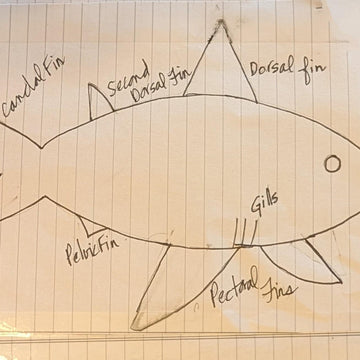 Candal Fin
Second
Dorsal Fin
Dorsal fin
Gills
Pelvic Fin
Pectoral Fins